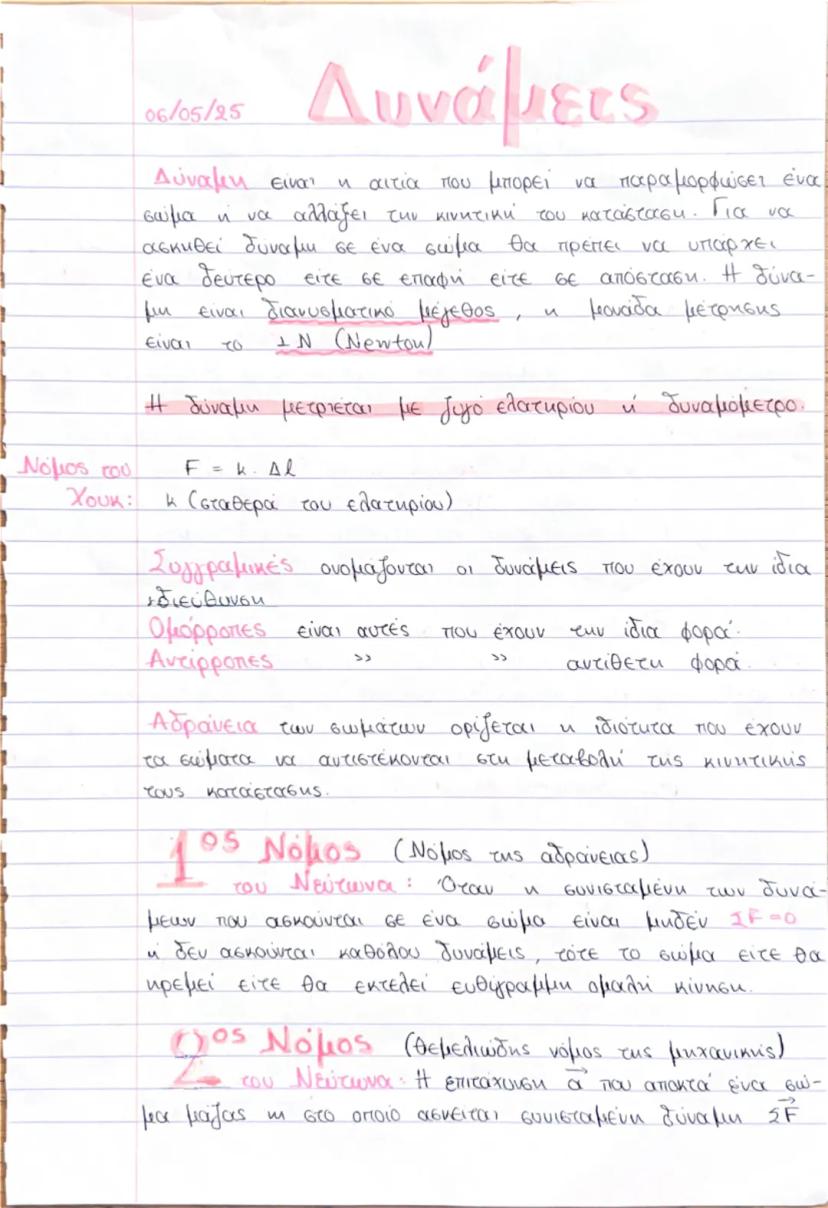 06/05/25 Δυνάμεις
Δύναμη είναι η αιτία που μπορεί να παραμορφώσει ένα
σώμα ή να αλλάξει την κινητική του κατάσταση. Για να
ασκηθεί δύναμη σε ένα σώμα θα πρέπει να υπάρχει
ένα δεύτερο είτε σε επαφή είτε σε απόσταση. Η δύνα-
μη είναι διανυσματικό μέγεθος, η μονάδα μέτρησης
είναι το 1 N (Newton)
Η δύναμη μετριέται με ζυγό ελατηρίου ή δυναμόμετρο.
Νόμος του F = k. Δl
Χουκ: k (σταθερά του ελατηρίου)
Συγγραμικές ονομάζονται οι δυνάμεις που έχουν την ίδια
διεύθυνση
Ομόρροπες είναι αυτές που έχουν την ίδια φορά.
Αντίρροπες >> >> αντίθετη φορά.
Αδράνεια των σωμάτων ορίζεται η ιδιότητα που έχουν
τα σώματα να αντιστέκονται στη μεταβολή της κινητικής
τους κατάστασης.
1ος Νόμος (Νόμος της αδράνειας)
του Νεύτωνα: Όταν η συνισταμένη των δυνά-
μεων που ασκούνται σε ένα σώμα είναι μηδέν ΣF=0
ή δεν ασκούνται καθόλου δυνάμεις, τότε το σώμα είτε θα
ηρεμεί είτε θα εκτελεί ευθύγραμμη ομαλή κίνηση.
2ος Νόμος (Θεμελιώδης νόμος της μηχανικής)
του Νεύτωνα: Η επιτάχυνση a⃗ που αποκτά ένα σώ-
μα μάζας m στο οποίο ασκείται συνισταμένη δύναμη ΣF⃗